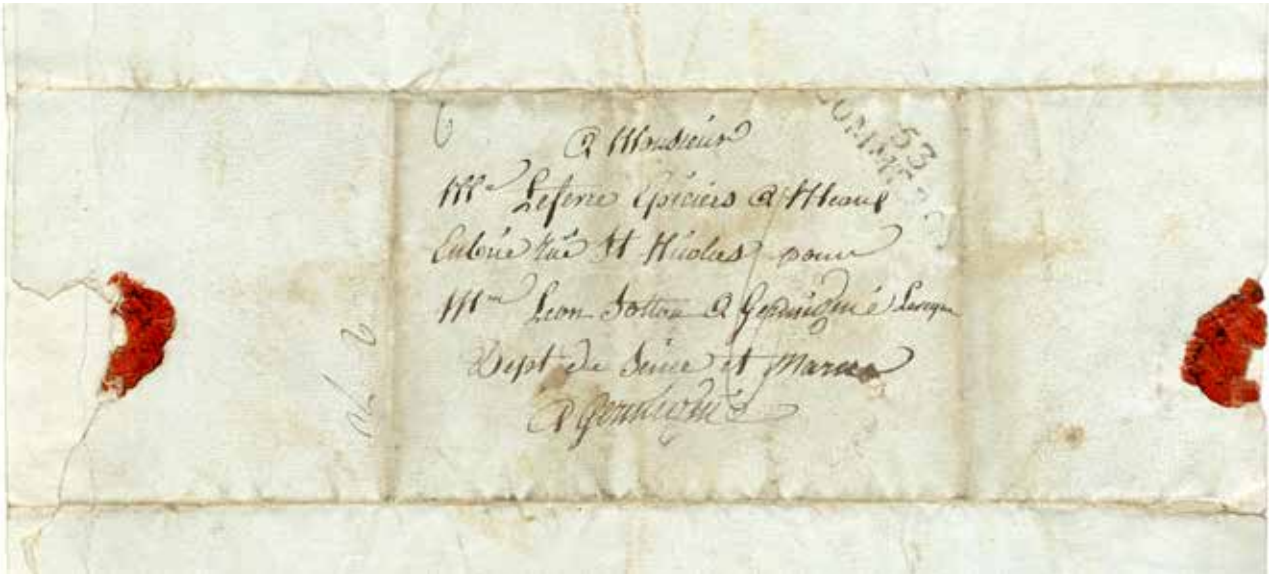 53
a Monsieur
Mr Lefevre Epiciers a Meaux
Enbrie rue St Nicolas pour
Mr Leon a Germigné Leveque
Dept de Seine et Marne
a Germigné